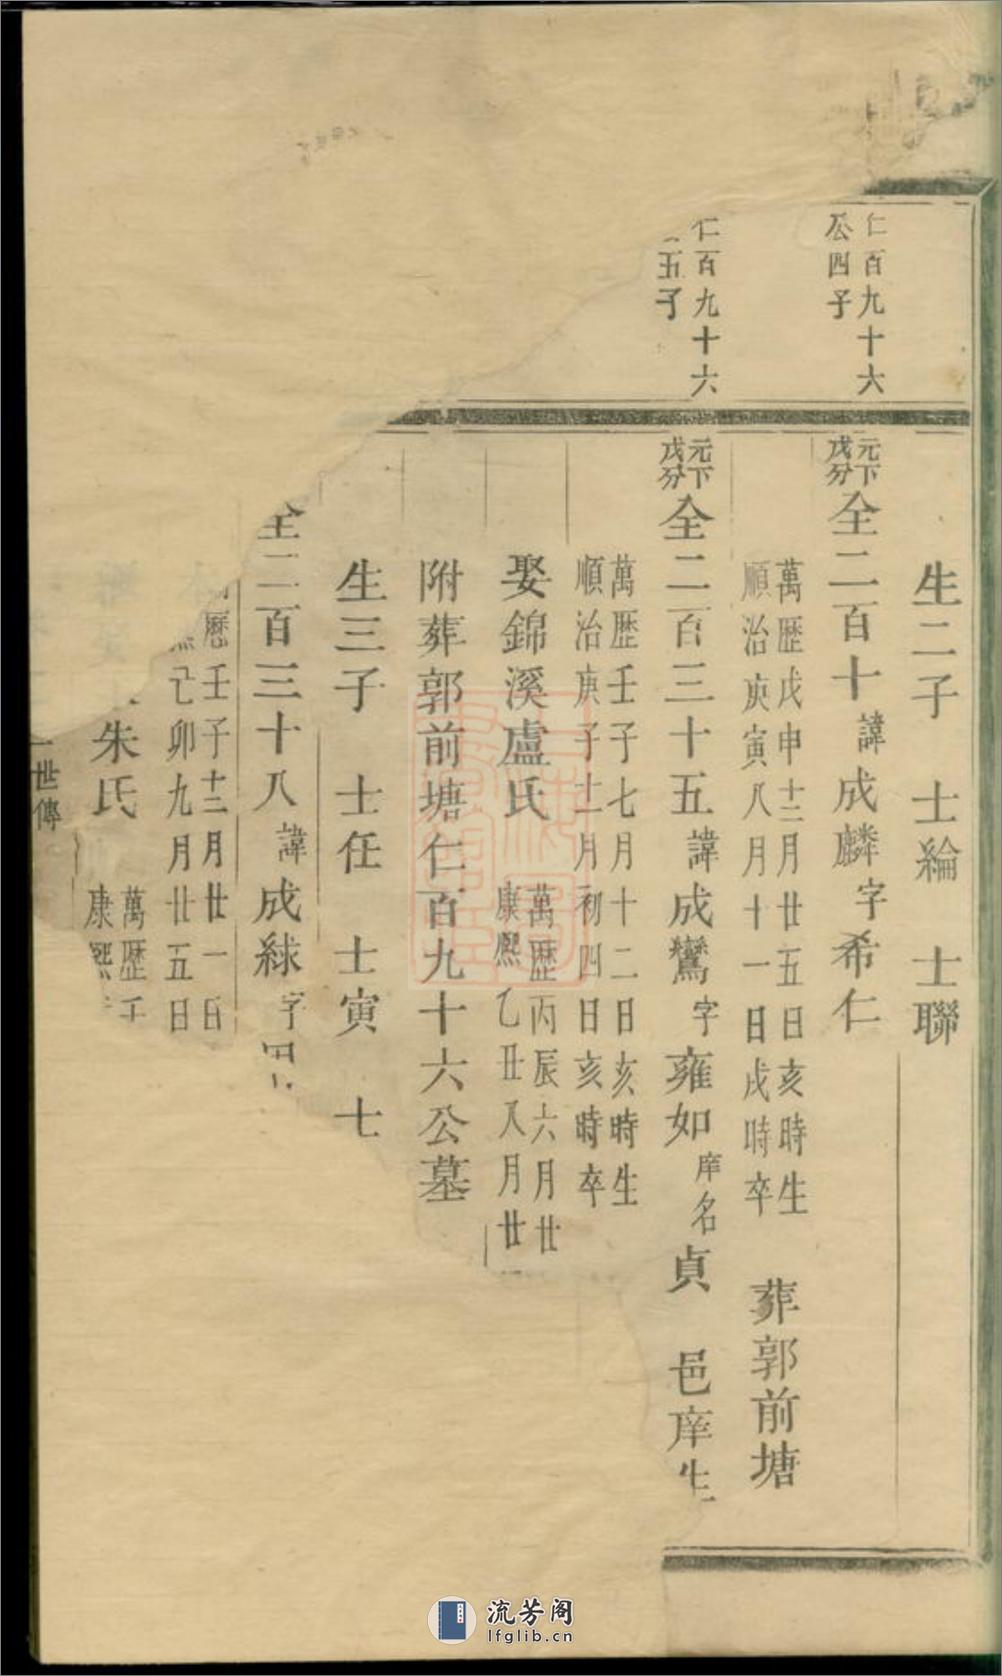 生二子 士綸 士聯
仁百九十六
公四子
元下
戊分
全二百十諱成麟字希仁
萬歷戊申十二月廿五日亥時生
順治庚寅八月十一日戌時卒
葬郭前塘
仁百九十六
五子
元下
戊分
全二百三十五諱成鸞字雍如庠名貞 邑庠生
萬歷壬子七月十二日亥時生
順治庚子十二月初四日亥時卒
娶錦溪盧氏
萬歷丙辰六月廿
康熙乙丑八月廿
附葬郭前塘仁百九十六公墓
生三子 士任 士寅 士
全二百三十八諱成綠字
歷壬子十二月廿一日
己卯九月廿五日
朱氏
萬歷壬
康熙
世傳
流芳阁
lfglib.cn